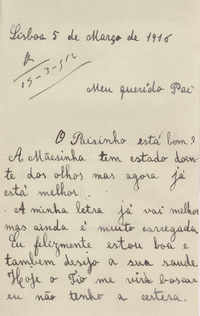 Lisboa 5 de Março de 1916
R
15-3-912
Meu querido Pai
O Paisinho está bom?
A Mãesinha tem estado doen-
te dos olhos mas agora já
está melhor.
A minha letra já vai melhor
mas ainda é muito carregada.
Eu felizmente estou boa e
tambem desejo a sua saude.
Hoje o Tio me virá buscar
eu não tenho a certesa.